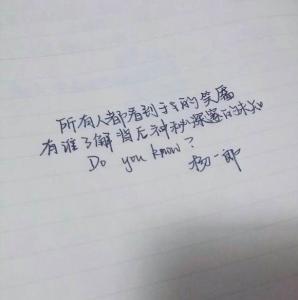 所有人都看到了我的笑靥
有谁了解背后神秘深邃的未知
Do you know?
杨一郎